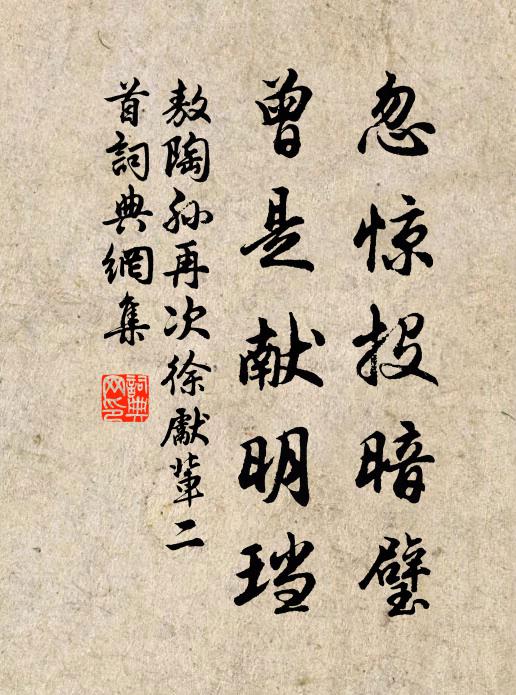 忽惊投暗璧
曾是献明珰
敖陶孙再次徐獻輩二
首詞典網集
詞典网印